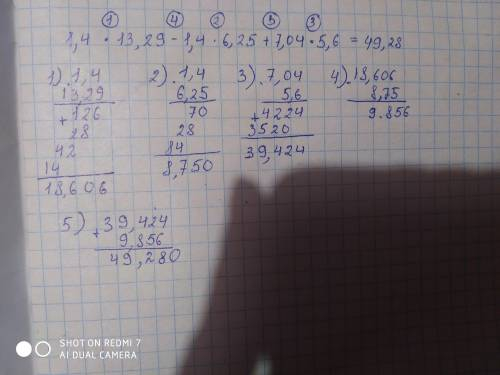 ① ④ ② ⑤ ③
1,4 · 13,29 - 1,4 · 6,25 + 7,04 · 5,6 = 49,28
1) . 1,4
13,29
+ 126
28
42
14
18,606
2) . 1,4
6,25
70
28
84
8,750
3) . 7,04
5,6
+ 4224
3520
39,424
4) . 18,606
8,75
9.856
5) + 39,424
9.856
49,280
SHOT ON REDMI 7
AI DUAL CAMERA